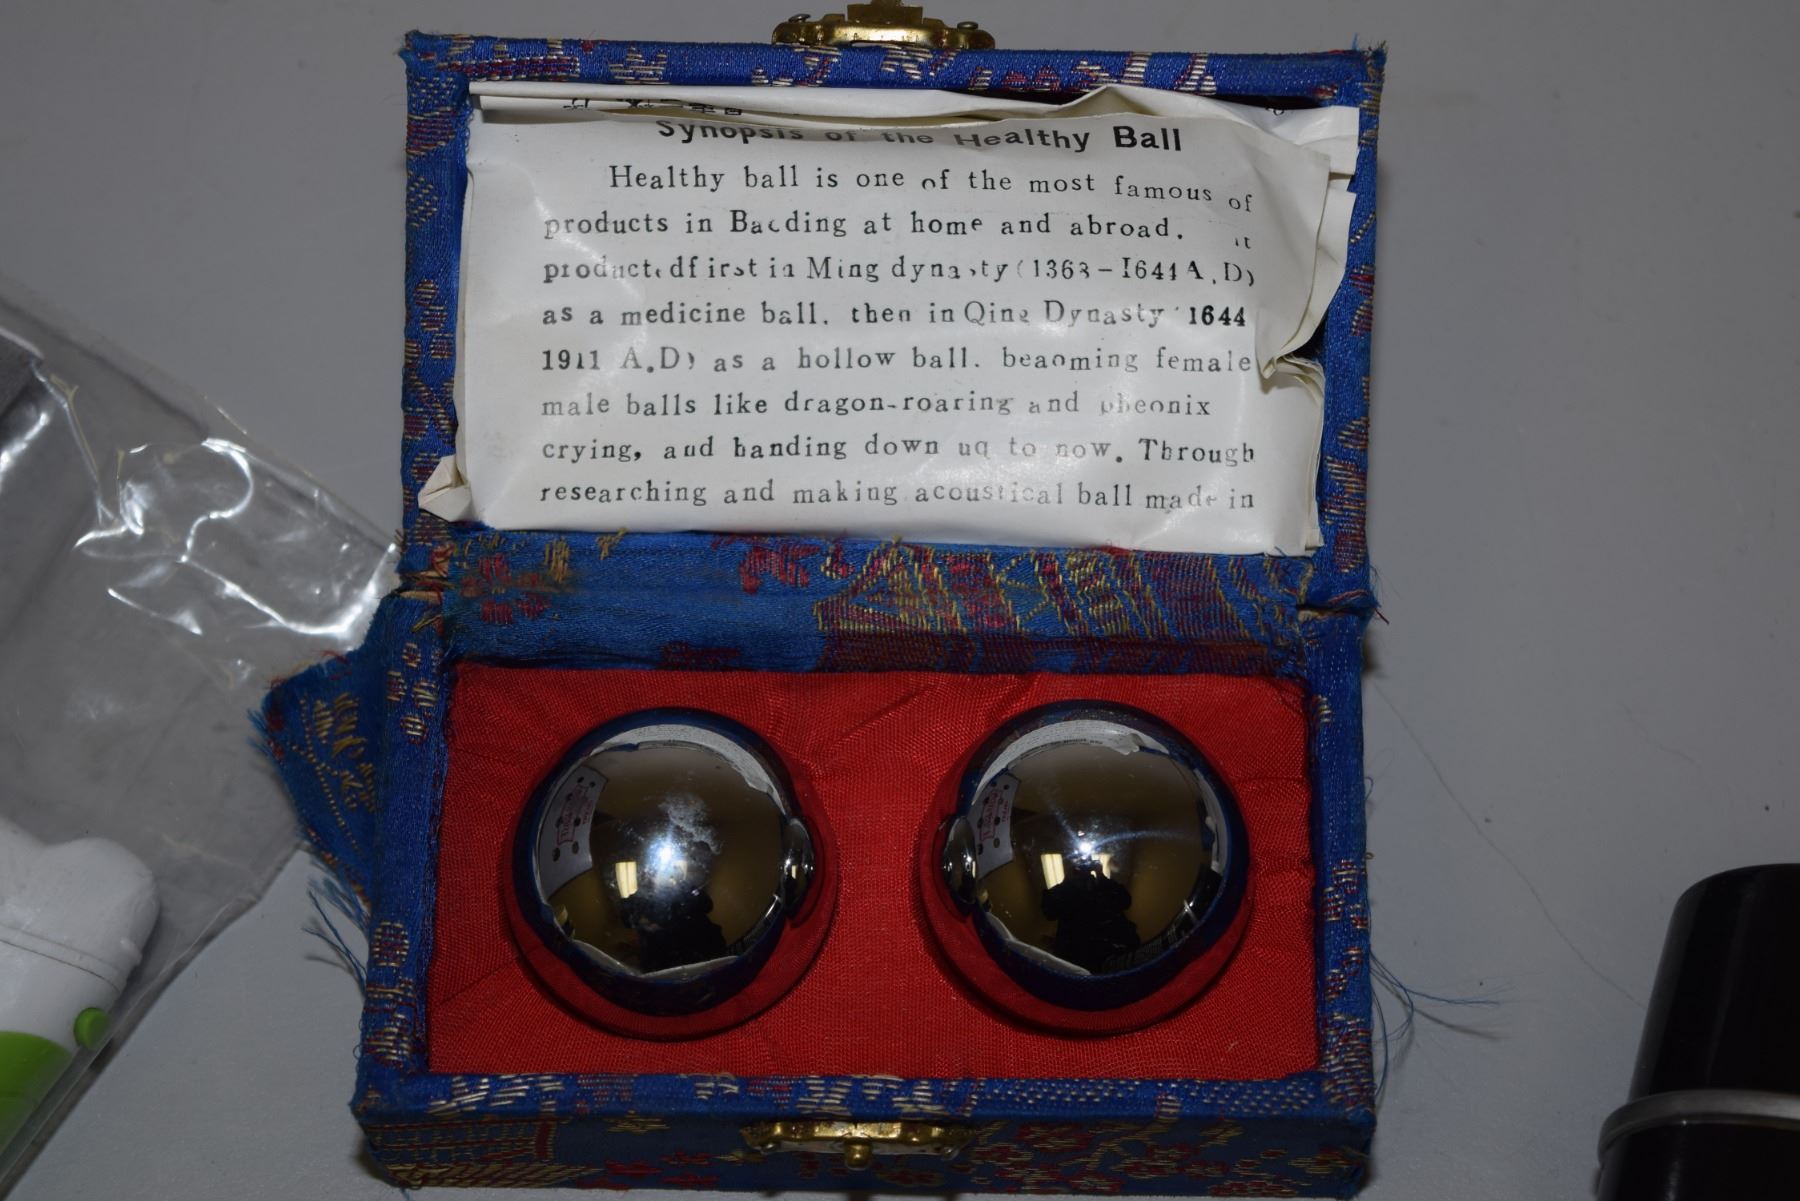 Synopsis of the Healthy Ball
Healthy ball is one of the most famous of
products in Baoding at home and abroad. it
producted first in Ming dynasty (1368-1644 A.D)
as a medicine ball. then in Qing Dynasty 1644
1911 A.D) as a hollow ball. beaoming female
male balls like dragon-roaring and pheonix
crying, and handing down uq to now. Through
researching and making acoustical ball made in